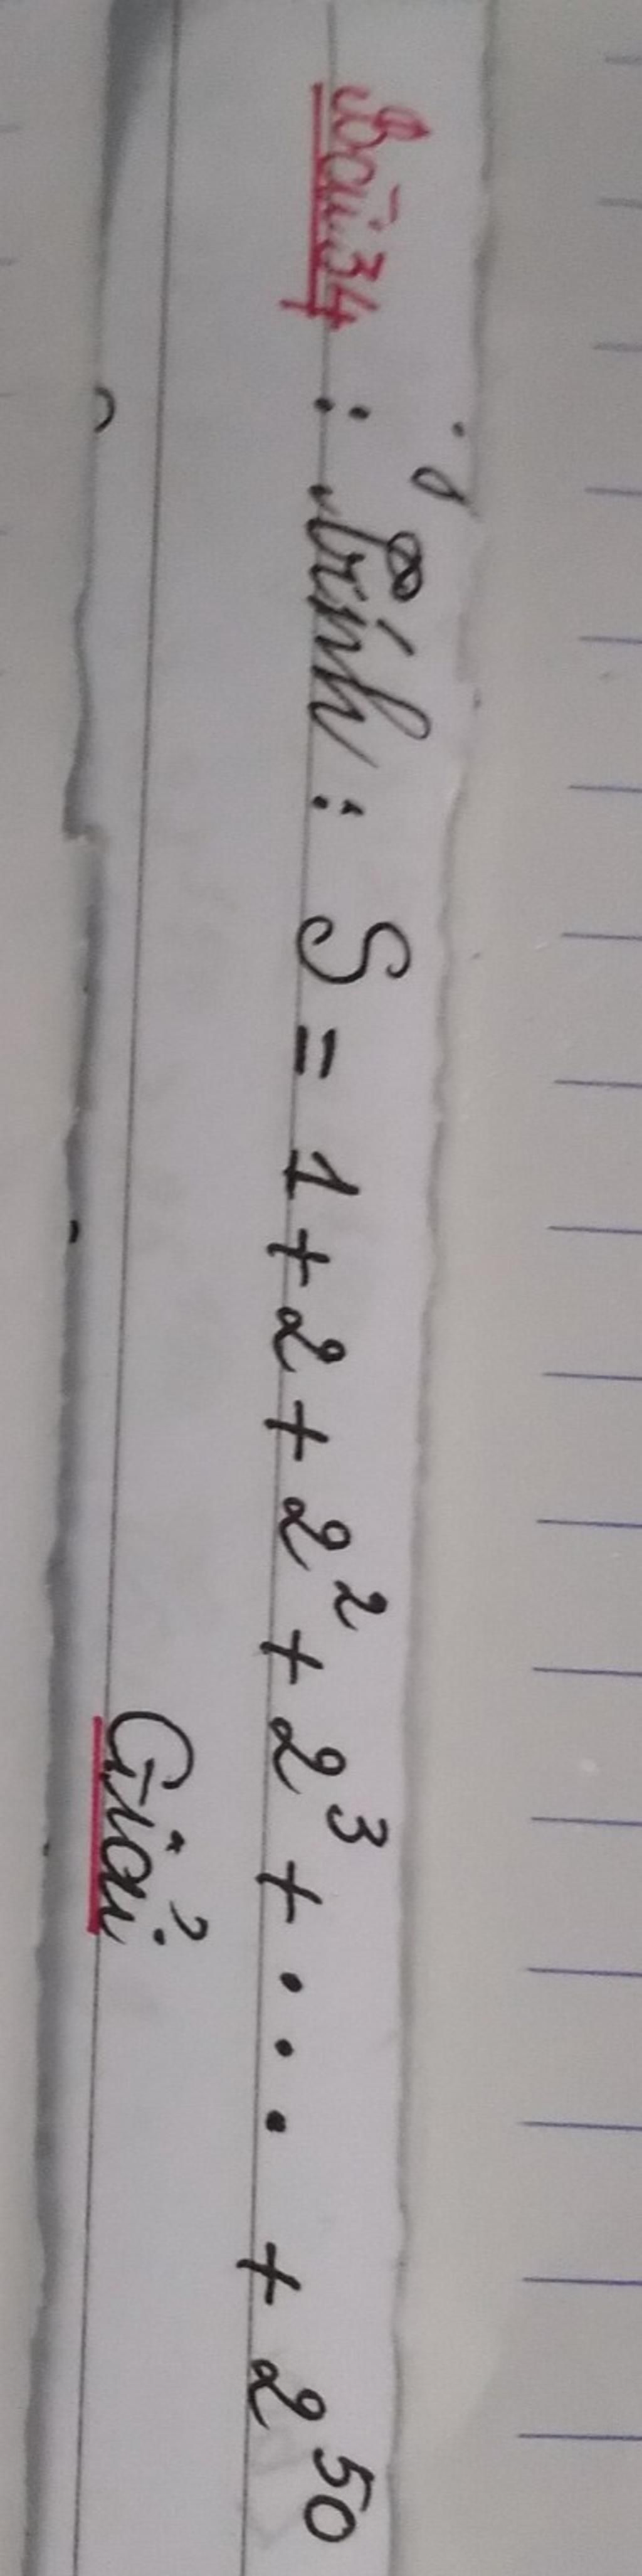 Bài 34 : Tính : S = 1 + 2 + 2² + 2³ + . . . + 2⁵⁰
Giải